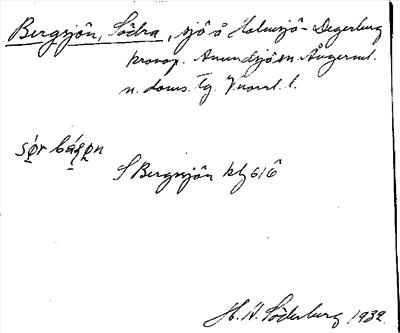 Bergsjön, Södra, sjö å Holmsjö-Degerberg
kronop. Anundsjö sn. Ångerml.
n. doms. tg. Vnorrl. l.
sǫ́r bá
S Bergsjön kbl 61 ö
H. H. Söderberg 1932